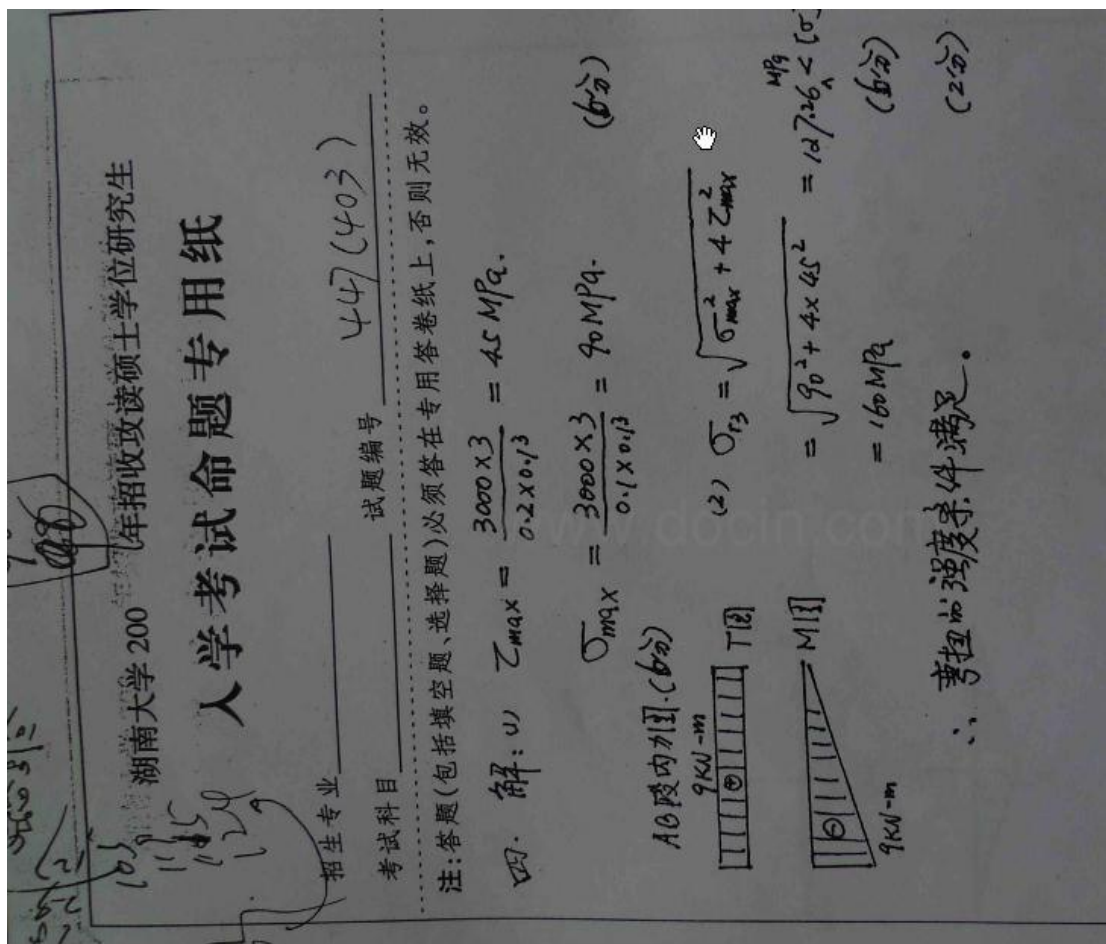 湖南大学 200 年招收攻读硕士学位研究生
入学考试命题专用纸
招生专业
考试科目 试题编号 447(403)
注:答题(包括填空题、选择题)必须答在专用答卷纸上,否则无效。
四. 解:(1) τmax = 3000×3 / 0.2×0.1³ = 45 MPa.
σmax = 3000×3 / 0.1×0.1³ = 90 MPa. (6分)
AB段内力图.(6分)
9KN-m
⊕ T图
(2) σr3 = √σ²max + 4τ²max
⊖ M图
9KN-m
= √90² + 4×45² = 127.26 MPa < [σ]
= 160 MPa (6分)
∴ 弯扭的强度条件满足。 (2分)
www.docin.com